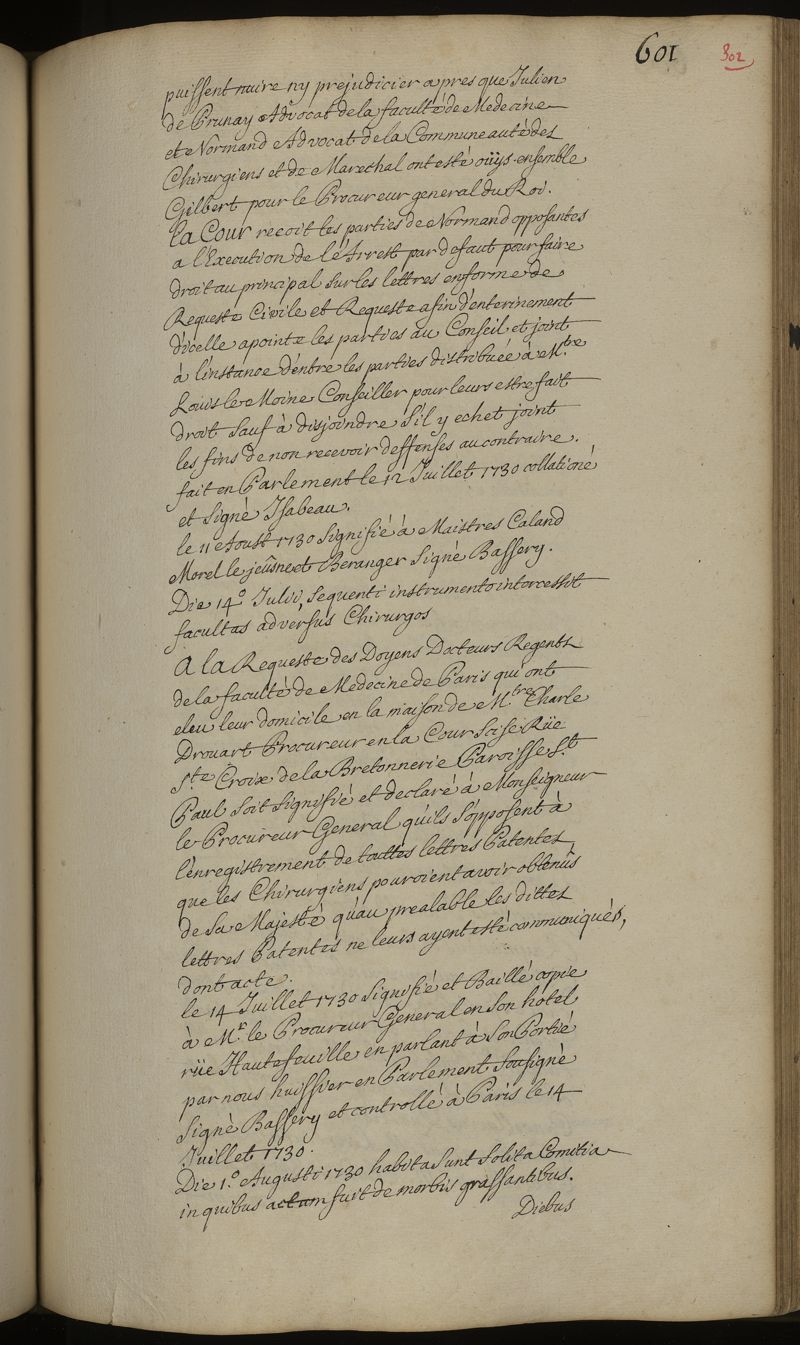 601 302
puissent nuire ny prejudicier apres que Julien
de Prunay Advocat de la faculté de Medecine
et Normand Advocat de la Communeauté des
Chirurgiens et de Marechal ont esté oüys ensemble
Gilbert pour le Procureur general du Roi.
la Cour recoit les parties de Normand opposantes
a l'Execution de l'Arrest par defaut pour faire
droit au principal sur les lettres en forme de
Requeste Civile et Requeste afin d'enterinement
d'icelle apointe les parties au Conseil et joint
à l'instance d'entre les parties distribuée à M.tre
Louis le Moine Conseiller pour leurs estre fait
droit sauf à disjoindre s'il y echet joint
les fins de non recevoir deffenses au contraire.
fait en Parlement le 12 Juillet 1730 collationé
et signé Isabeau.
le 11 Aoust 1730 signifié à Maistres Caland
Morel le jeûne et Beranger signé Bassery.
Die 14.o Julii, sequenti instrumento intercessit
facultas adversus Chirurgos
A la Requeste des Doyens Docteurs Regents
de la faculté de Medecine de Paris qui ont
eleu leur domicile en la maison de M.tre Charle
Drouart Procureur en la Cour scise Rüe
S.te Croix de la Bretonnerie Paroisse S.t
Paul soit signifié et declaré à Monseigneur
le Procureur General qu'ils s'opposent à
l'enregistrement de touttes lettres Patentes
que les Chirurgiens pouroient avoir obtenüs
de Sa Majesté qu'au prealable les dittes
lettres Patentes ne leurs ayent esté communiqués,
dont acte.
le 14 Juillet 1730 signifié et Baillé copie
à M.r le Procureur General en son hotel
rüe Hautefeuille en parlant à son Portié
par nous huissier en Parlement sousigné
signé Bassery et controllé à Paris le 14
Juillet 1730.
Die 1.o Augusti 1730 habita sunt solita Comitia
in quibus actum fuit de morbis grassantibus.
Diebus